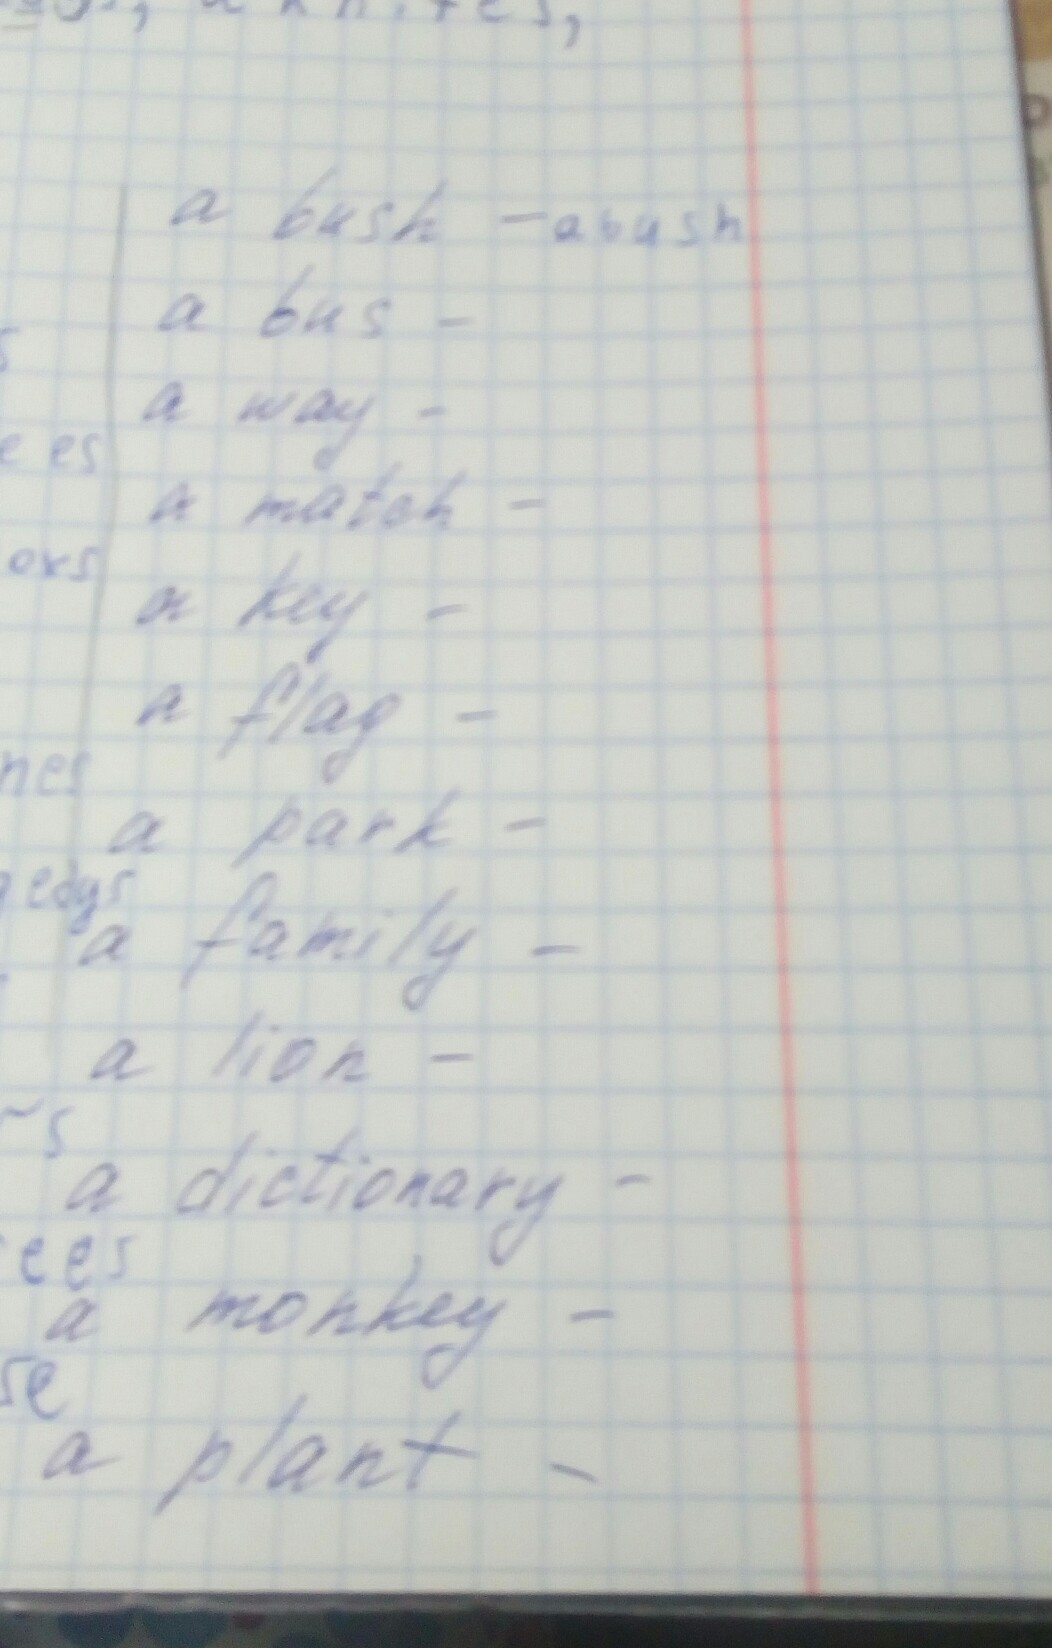 a bush - abush
a bus -
s
a way -
ees
a match -
oxs
a key -
a flag -
nes
a park -
a family -
a lion -
rs
a dictionary -
ees
a monkey -
se
a plant -